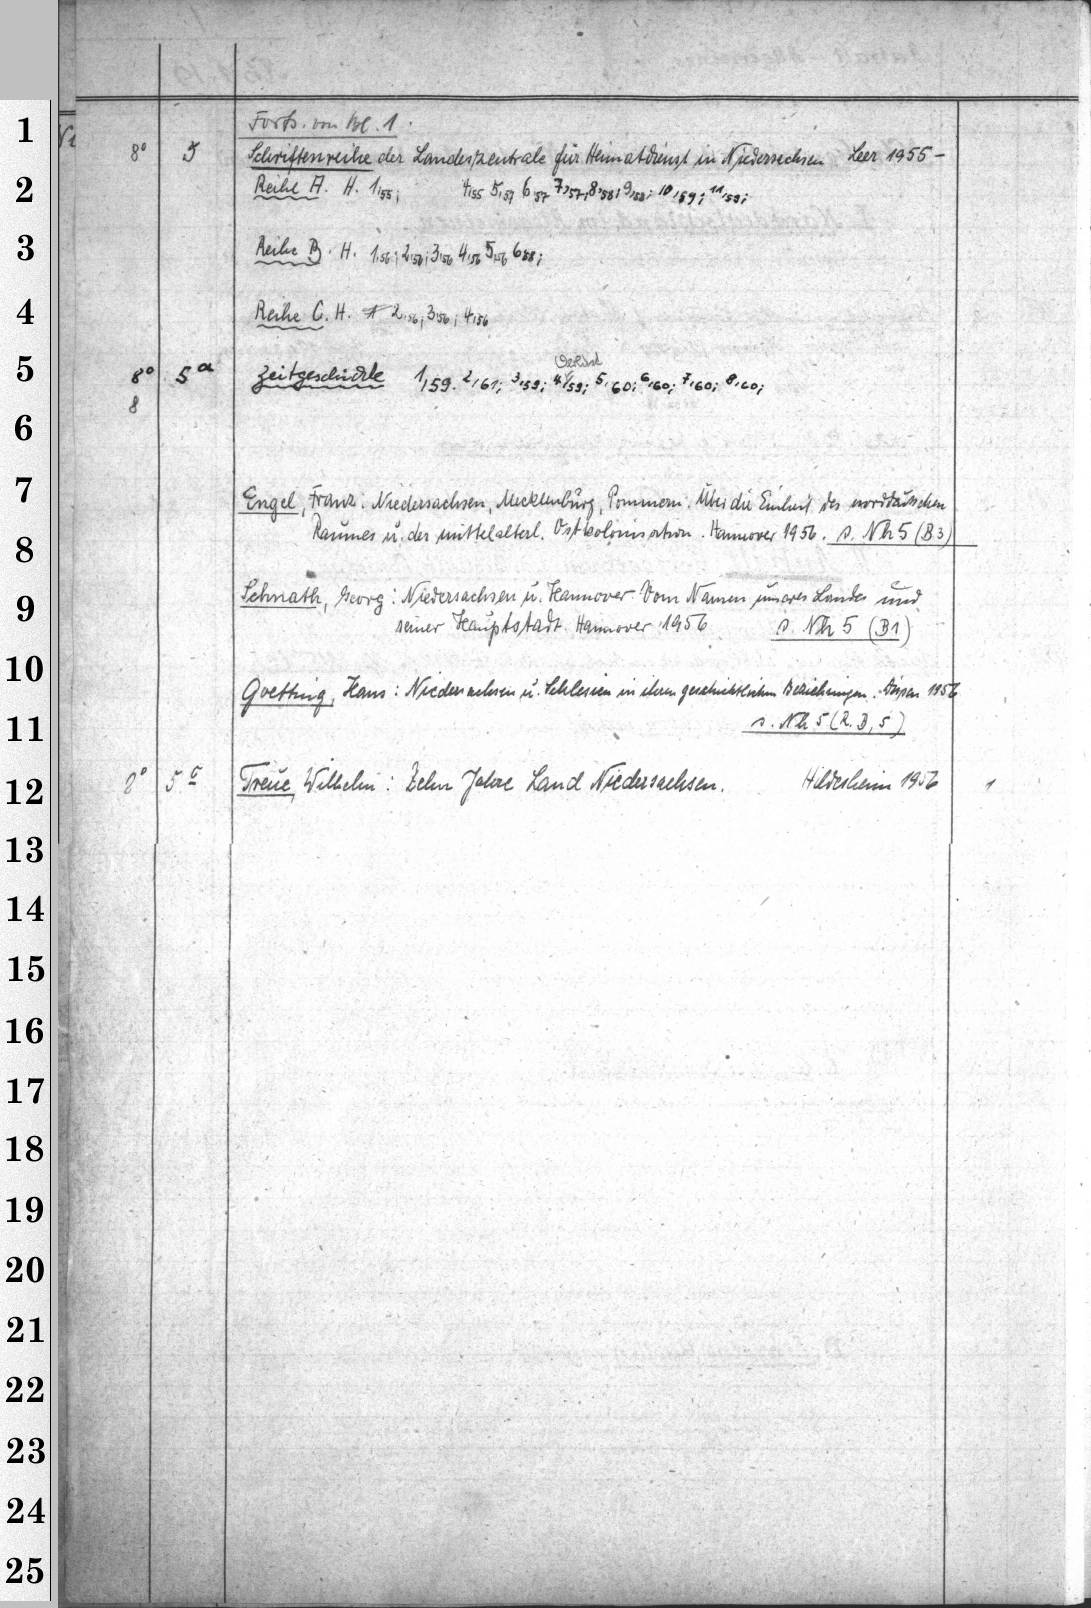 1
Forts. von Bl. 1.
8° 5 Schriftenreihe der Landeszentrale für Heimatdienst in Niedersachsen Leer 1955 -
2
Reihe A. H. 1,55; 4,55 5,57 6,57 7,57; 8,58; 9,58; 10,59; 11,59;
3
Reihe B. H. 1,56; 2,56; 3,56 4,56 5,56 6,58;
4
Reihe C. H. 2,56; 3,56; 4,56
5
8° 5a Zeitgeschichte 1,59. 2,61; 3,59; 4,59; 5,60; 6,60; 7,60; 8,60;
8
6
7
Engel, Franz. Niedersachsen, Mecklenburg, Pommern. Über die Einheit des norddeutschen
8
Raumes u. der mittelalterl. Ostkolonisation. Hannover 1956. s. Nh 5 (B3)
9
Schnath, Georg: Niedersachsen u. Hannover. Vom Namen unseres Landes und
seiner Hauptstadt. Hannover 1956 s. Nh 5 (B1)
10
Goetting, Hans: Niedersachsen u. Schlesien in ihren geschichtlichen Beziehungen. 1956
11
s. Nh 5 (R. B, 5)
12
8° 5c Treue, Wilhelm: Zehn Jahre Land Niedersachsen. Hildesheim 1956 1
13
14
15
16
17
18
19
20
21
22
23
24
25